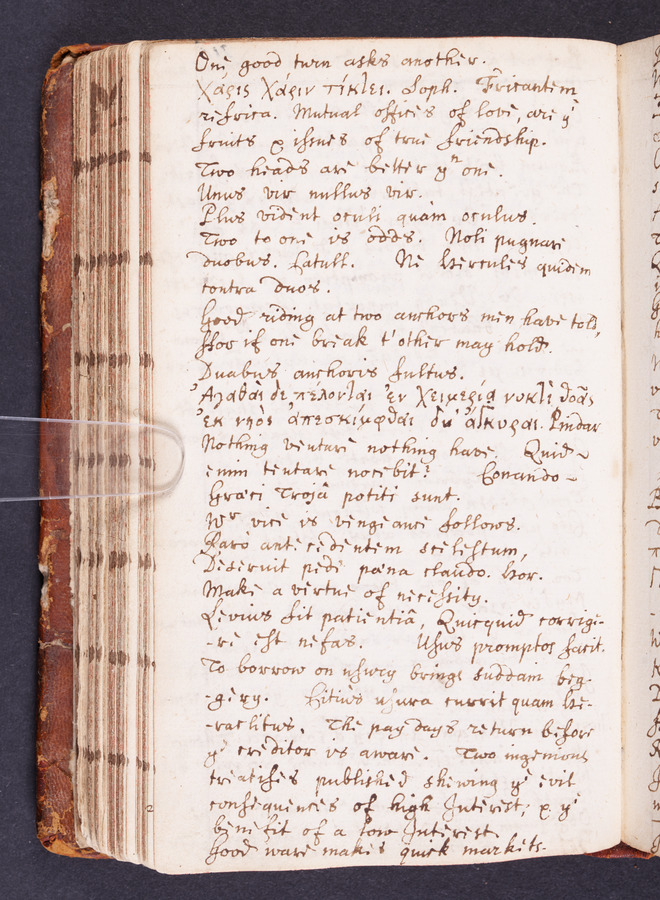 One good turn asks another.
Χάρις Χάριν τίκτει. Soph. Fricantem
refrica. Mutual offices of love, are yͤ
fruits & issues of true friendship.
Two heads are better yⁿ one.
Unus vir nullus vir.
Plus vident oculi quam oculus.
Two to one is odds. Noli pugnare
duobus. Catull. Ne Hercules quidem
contra duos.
Good riding at two anchors men have told,
ffor if one break t'other may hold.
Duabus anchoris fultus.
Ἀγαθαὶ δὲ πέλονται ἐν χειμερίᾳ νυκτὶ θοᾶς
ἐκ νηὸς ἀπεσκίμφθαι δύ' ἄγκυραι. Pindar
Nothing venture nothing have. Quid
enim tentare nocebit? Conando
Græci Trojâ potiti sunt.
Wʳ vice is vengeance follows.
Raro antecedentem scelestum,
Deseruit pede pœna claudo. Hor.
Make a vertue of necessity.
Levius fit patientiâ, Quicquid corrige-
-re est nefas. Usus promptos facit.
To borrow on usury brings suddain beg-
-gery. Citius usura currit quam He-
-raclitus. The pay days return before
yͤ creditor is aware. Two ingenious
treatises published shewing yͤ evil
consequences of high Interest; & yͤ
benefit of a low Interest.
Good ware makes quick markets.
2